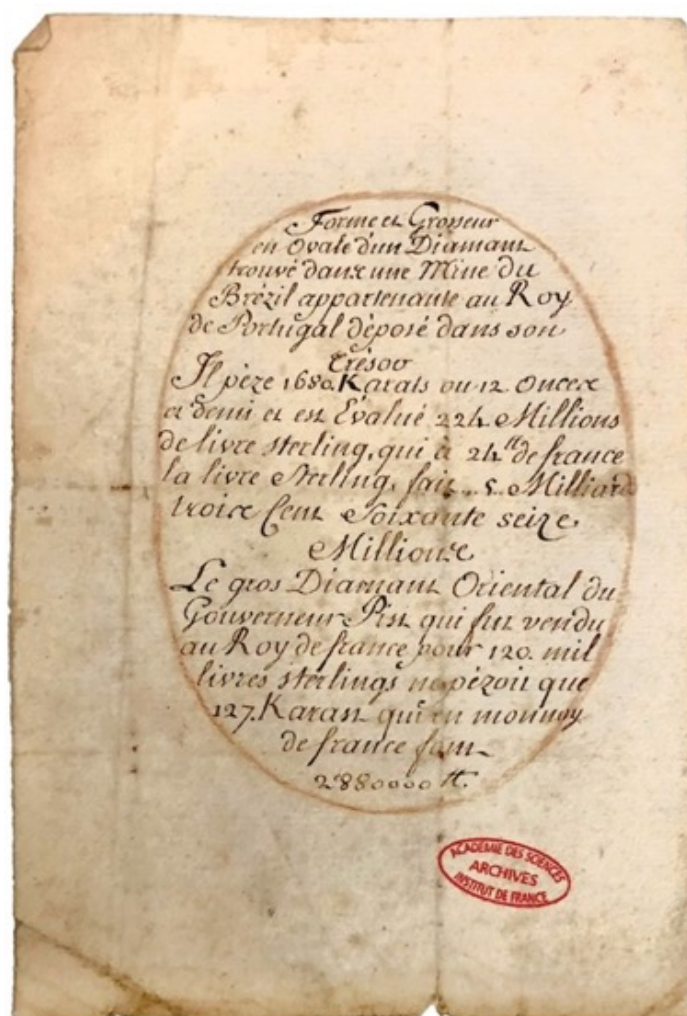 Forme et Grosseur
en Ovale d'un Diamant
trouvé dans une Mine du
Brézil appartenante au Roy
de Portugal déposé dans son
trésor
Il pèze 1680. Karats ou 12 Onces
et demi et est Évalué 224 Millions
de livre sterling, qui à 24 ₶ de france
la livre Sterling, fait .. 5. Milliard
trois Cent Soixante seize
Millions
Le gros Diamant Oriental du
Gouverneur Pitt qui fut vendu
au Roy de france pour 120. mil
livres sterlings ne pézoit que
127. Karats qui en monnoy
de france font
2880000 ₶.
ACADÉMIE DES SCIENCES
ARCHIVES
INSTITUT DE FRANCE